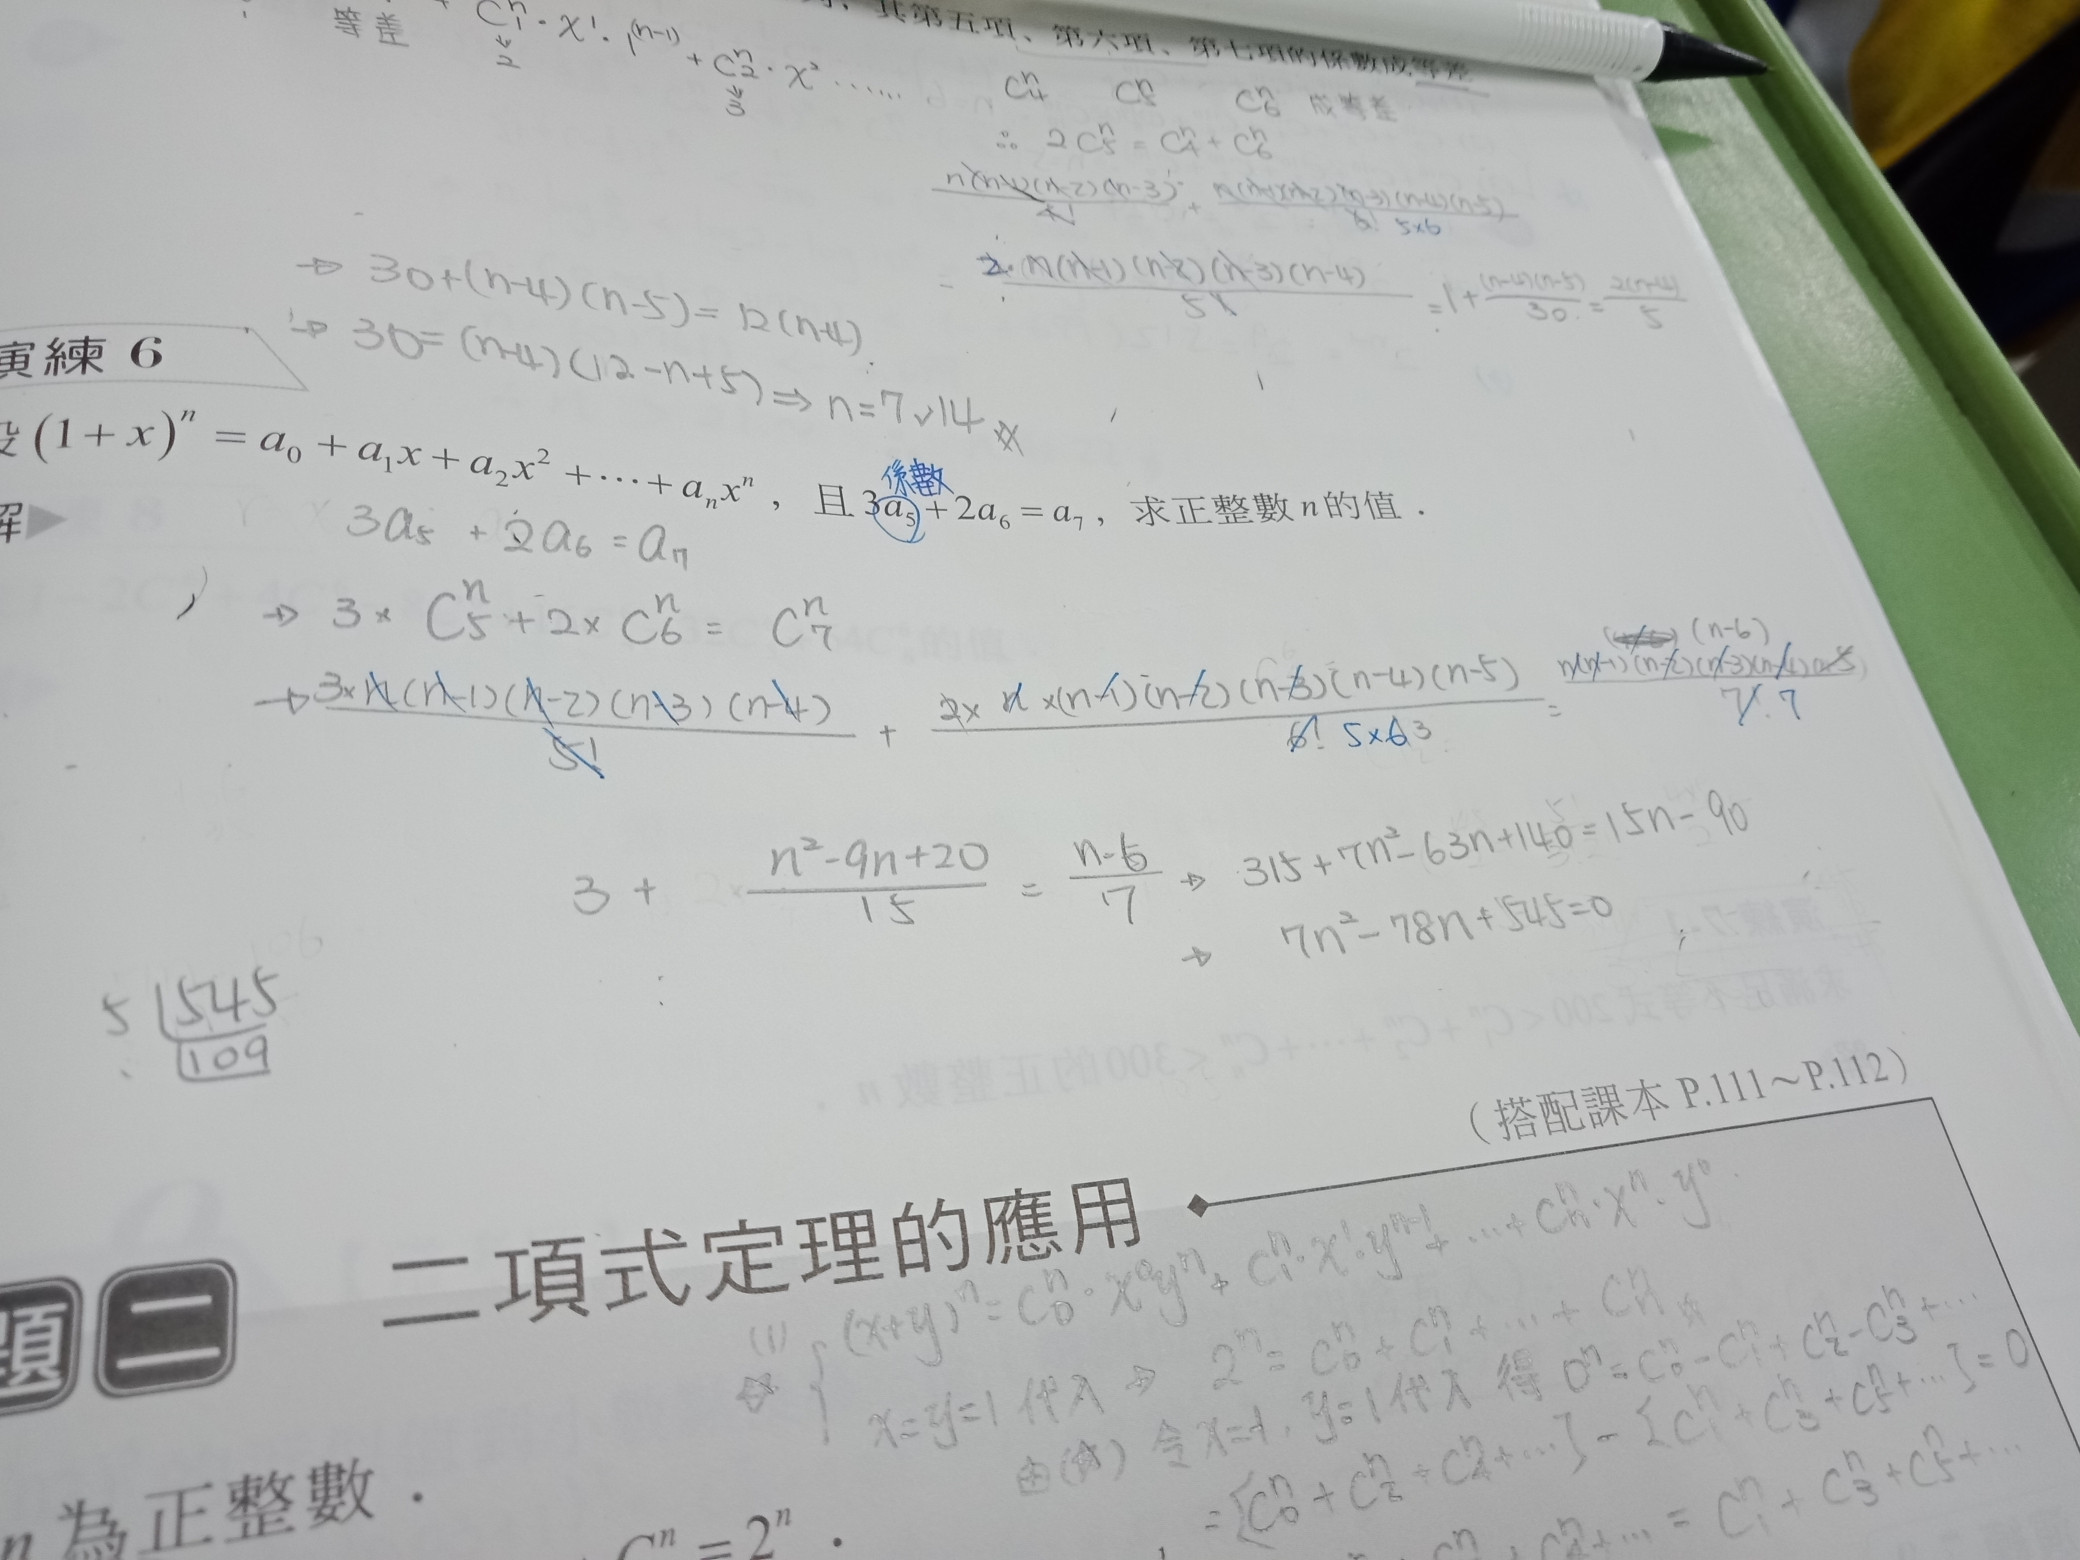 等差 + C₁ⁿ · x¹ · 1⁽ⁿ⁻¹⁾ + C₂ⁿ · x² ......
2 3
其第五項、第六項、第七項的係數成等差
C₄ⁿ C₅ⁿ C₆ⁿ 成等差
∴ 2C₅ⁿ = C₄ⁿ + C₆ⁿ
n(n-1)(n-2)(n-3)/4! + n(n-1)(n-2)(n-3)(n-4)(n-5)/6! 5×6
= 2·n(n-1)(n-2)(n-3)(n-4)/5! = 1 + (n-4)(n-5)/30 = 2(n-4)/5
⇒ 30+(n-4)(n-5)=12(n-4)
⇒ 30=(n-4)(12-n+5) ⇒ n=7∨14
演練 6
設 (1+x)ⁿ = a₀ + a₁x + a₂x² + ⋯ + aₙxⁿ ,且 3a₅ + 2a₆ = a₇ ,求正整數 n 的值.
係數
解▶ 3a₅ + 2a₆ = a₇
→ 3 × C₅ⁿ + 2 × C₆ⁿ = C₇ⁿ
→ 3×n(n-1)(n-2)(n-3)(n-4)/5! + 2×n×(n-1)(n-2)(n-3)(n-4)(n-5)/6! 5×6 3 = n(n-1)(n-2)(n-3)(n-4)(n-5) (n-6)/7! 7
3 + n²-9n+20/15 = n-6/7 → 315+7n²-63n+140=15n-90
→ 7n²-78n+545=0
5 545
109
(搭配課本 P.111～P.112)
題二 二項式定理的應用
(1) (x+y)ⁿ = C₀ⁿ · x⁰yⁿ + C₁ⁿ · x¹ · yⁿ⁻¹ + ... + Cₙⁿ · xⁿ · y⁰
x=y=1代入 ⇒ 2ⁿ = C₀ⁿ + C₁ⁿ + ... + Cₙⁿ
由(☆) 令x=-1, y=1代入 得 0ⁿ = C₀ⁿ - C₁ⁿ + C₂ⁿ - C₃ⁿ + ...
= {C₀ⁿ + C₂ⁿ + C₄ⁿ + ...} - {C₁ⁿ + C₃ⁿ + C₅ⁿ + ...} = 0
... = C₁ⁿ + C₃ⁿ + C₅ⁿ + ...
n 為正整數.
Cⁿ = 2ⁿ .